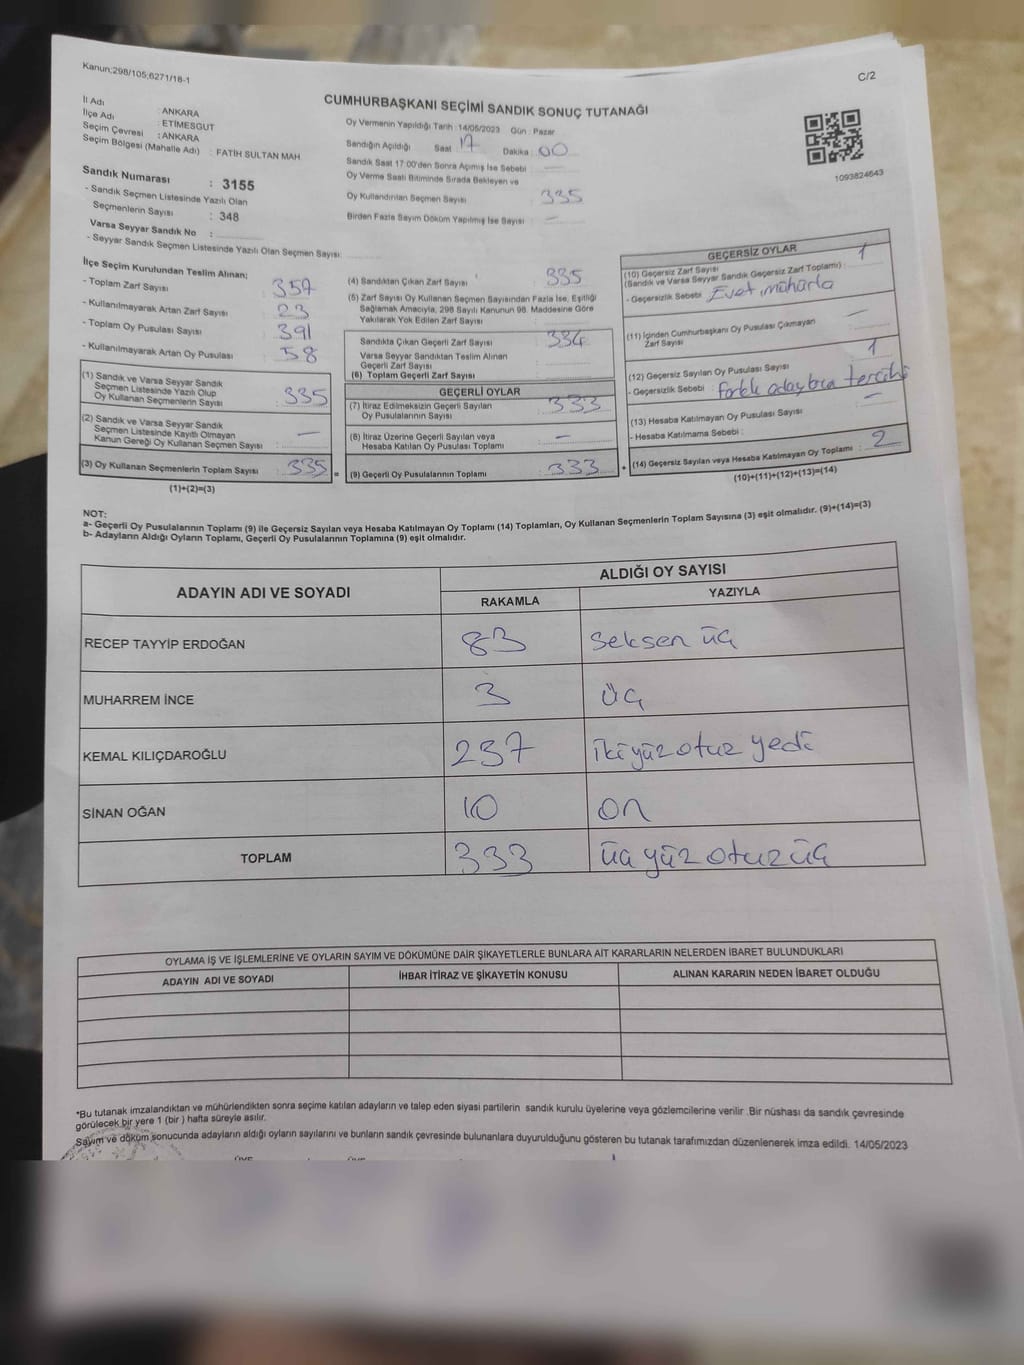 Kanun;298/105;6271/18-1
C/2
CUMHURBAŞKANI SEÇİMİ SANDIK SONUÇ TUTANAĞI
İl Adı : ANKARA
İlçe Adı : ETİMESGUT
Seçim Çevresi : ANKARA
Seçim Bölgesi (Mahalle Adı) : FATİH SULTAN MAH
Sandık Numarası : 3155
- Sandık Seçmen Listesinde Yazılı Olan
Seçmenlerin Sayısı : 348
Varsa Seyyar Sandık No :
- Seyyar Sandık Seçmen Listesinde Yazılı Olan Seçmen Sayısı:
Oy Vermenin Yapıldığı Tarih :14/05/2023 Gün : Pazar
Sandığın Açıldığı Saat : 17 Dakika : 00
Sandık Saat 17:00'den Sonra Açımış İse Sebebi : —
Oy Verme Saati Bitiminde Sırada Bekleyen ve
Oy Kullandırılan Seçmen Sayısı : 335
Birden Fazla Sayım Döküm Yapılmış İse Sayısı : —
1093824643
İlçe Seçim Kurulundan Teslim Alınan;
- Toplam Zarf Sayısı : 357
- Kullanılmayarak Artan Zarf Sayısı : 23
- Toplam Oy Pusulası Sayısı : 391
- Kullanılmayarak Artan Oy Pusulası : 58
(1) Sandık ve Varsa Seyyar Sandık
Seçmen Listesinde Yazılı Olup
Oy Kullanan Seçmenlerin Sayısı : 335
(2) Sandık ve Varsa Seyyar Sandık
Seçmen Listesinde Kayıtlı Olmayan
Kanun Gereği Oy Kullanan Seçmen Sayısı : —
(3) Oy Kullanan Seçmenlerin Toplam Sayısı : 335 =
(1)+(2)=(3)
(4) Sandıktan Çıkan Zarf Sayısı : 335
(5) Zarf Sayısı Oy Kullanan Seçmen Sayısından Fazla İse, Eşitliği
Sağlamak Amacıyla, 298 Sayılı Kanunun 98. Maddesine Göre
Yakılarak Yok Edilen Zarf Sayısı :
Sandıkta Çıkan Geçerli Zarf Sayısı : 334
Varsa Seyyar Sandıktan Teslim Alınan
Geçerli Zarf Sayısı :
(6) Toplam Geçerli Zarf Sayısı :
GEÇERLİ OYLAR
(7) İtiraz Edilmeksizin Geçerli Sayılan
Oy Pusulalarının Sayısı : 333
(8) İtiraz Üzerine Geçerli Sayılan veya
Hesaba Katılan Oy Pusulası Toplamı : —
(9) Geçerli Oy Pusulalarının Toplamı : 333 +
GEÇERSİZ OYLAR
(10) Geçersiz Zarf Sayısı
(Sandık ve Varsa Seyyar Sandık Geçersiz Zarf Toplamı) : 1
- Geçersizlik Sebebi : Evet, mühürla
(11) İçinden Cumhurbaşkanı Oy Pusulası Çıkmayan
Zarf Sayısı : —
(12) Geçersiz Sayılan Oy Pusulası Sayısı : 1
- Geçersizlik Sebebi : tercihi
(13) Hesaba Katılmayan Oy Pusulası Sayısı : —
- Hesaba Katılmama Sebebi :
(14) Geçersiz Sayılan veya Hesaba Katılmayan Oy Toplamı : 2
(10)+(11)+(12)+(13)=(14)
NOT:
a- Geçerli Oy Pusulalarının Toplamı (9) ile Geçersiz Sayılan veya Hesaba Katılmayan Oy Toplamı (14) Toplamları, Oy Kullanan Seçmenlerin Toplam Sayısına (3) eşit olmalıdır. (9)+(14)=(3)
b- Adayların Aldığı Oyların Toplamı, Geçerli Oy Pusulalarının Toplamına (9) eşit olmalıdır.
ADAYIN ADI VE SOYADI
ALDIĞI OY SAYISI
RAKAMLA YAZIYLA
RECEP TAYYİP ERDOĞAN 83 Seksen üç
MUHARREM İNCE 3 üç
KEMAL KILIÇDAROĞLU 237 ikiyüzotuz yedi
SİNAN OĞAN 10 on
TOPLAM 333 üç yüz otuz üç
OYLAMA İŞ VE İŞLEMLERİNE VE OYLARIN SAYIM VE DÖKÜMÜNE DAİR ŞİKAYETLERLE BUNLARA AİT KARARLARIN NELERDEN İBARET BULUNDUKLARI
ADAYIN ADI VE SOYADI İHBAR İTİRAZ VE ŞİKAYETİN KONUSU ALINAN KARARIN NEDEN İBARET OLDUĞU
*Bu tutanak imzalandıktan ve mühürlendikten sonra seçime katılan adayların ve talep eden siyasi partilerin sandık kurulu üyelerine veya gözlemcilerine verilir .Bir nüshası da sandık çevresinde
görülecek bir yere 1 (bir ) hafta süreyle asılır.
Sayım ve döküm sonucunda adayların aldığı oyların sayılarını ve bunların sandık çevresinde bulunanlara duyurulduğunu gösteren bu tutanak tarafımızdan düzenlenerek imza edildi. 14/05/2023